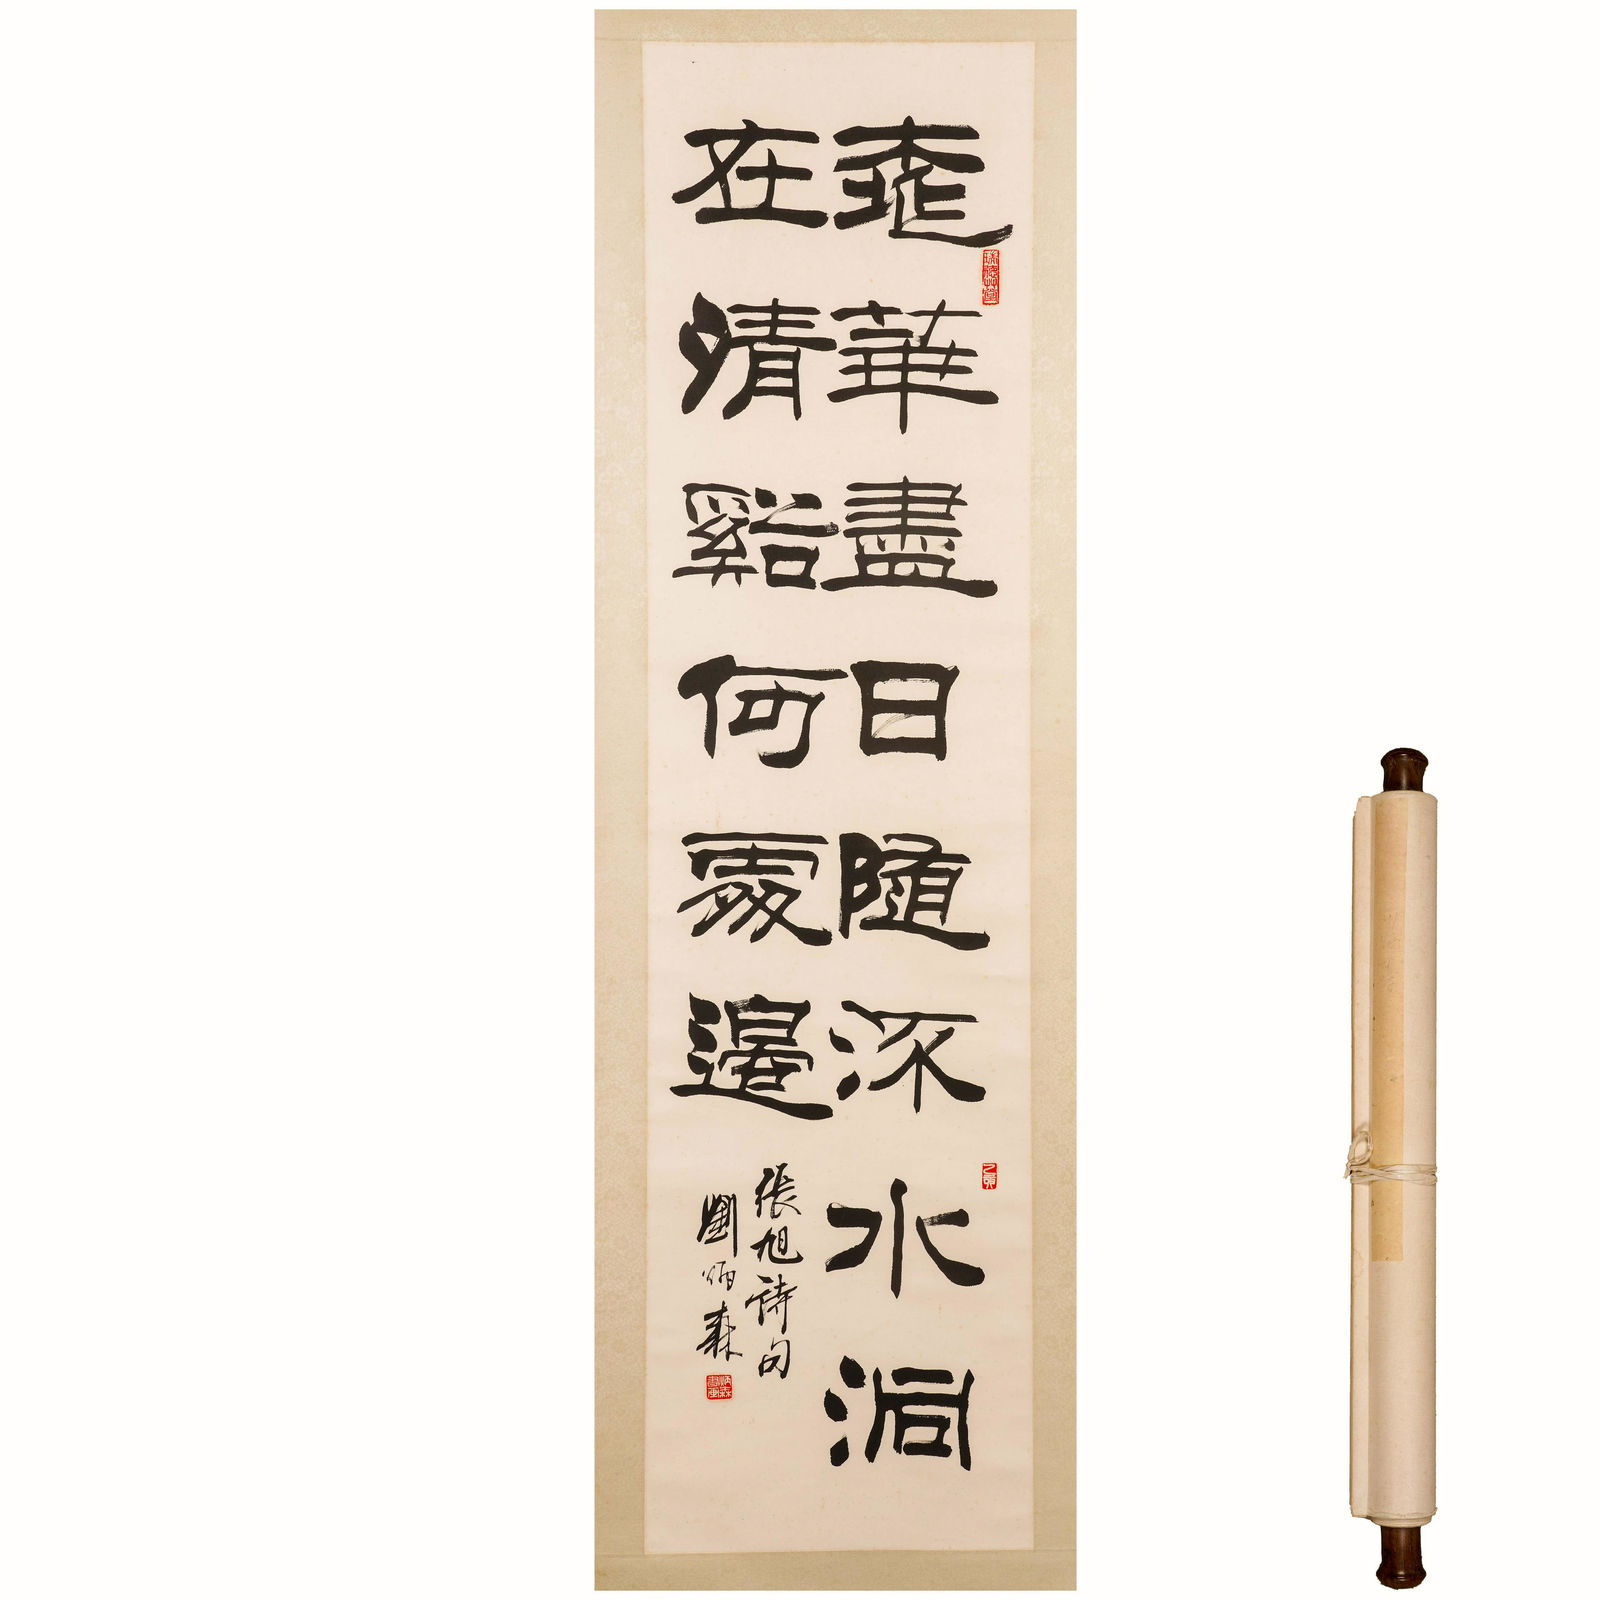 桃華盡日隨㳅水洞
在清谿何處邊
張旭詩句
劉炳森